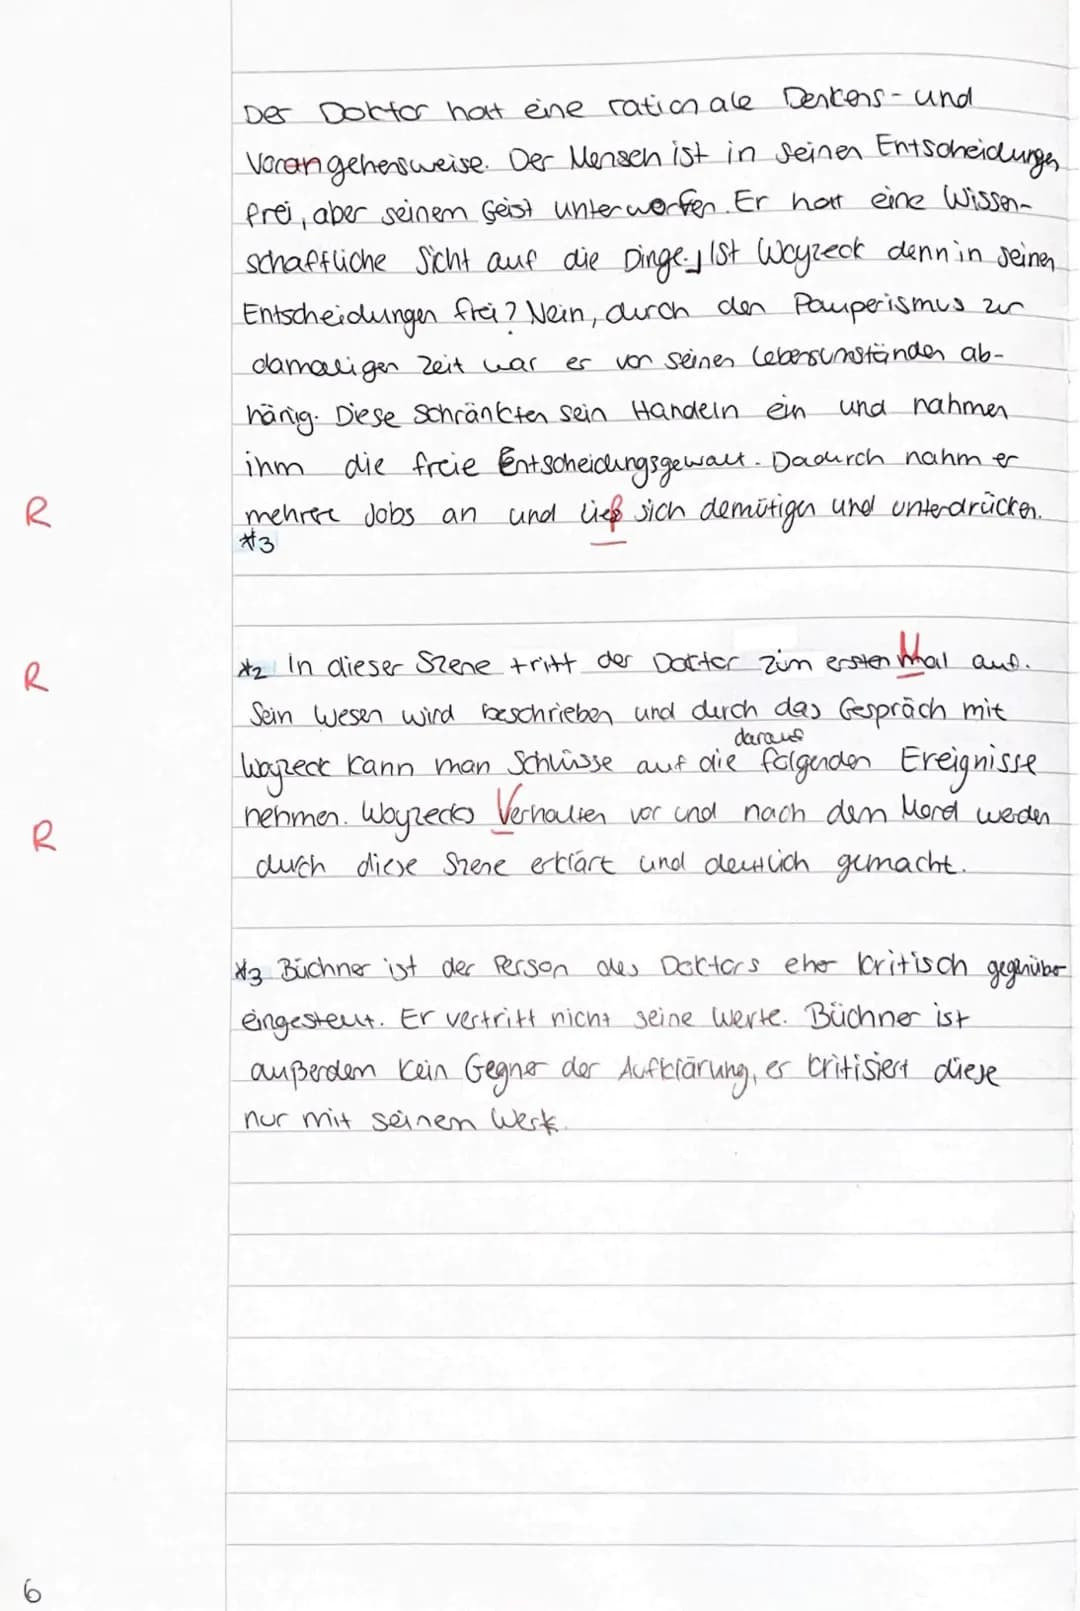 Der Doktor hat eine rationale Denkens- und
Vorangehensweise. Der Mensch ist in seinen Entscheidungen
frei, aber seinem Geist unterworfen. Er hat eine Wissen-
schaftliche Sicht auf die Dinge. Ist Woyzeck denn in seinen
Entscheidungen frei? Nein, durch den Pauperismus zur
damaligen Zeit war er von seinen Lebensumständen ab-
hänig. Diese Schränkten sein Handeln ein und nahmen
ihm die freie Entscheidungsgewalt. Dadurch nahm er
R mehrere Jobs an und ließ sich demütigen und unterdrücken.
*3
R *2 In dieser Szene tritt der Doktor zum ersten Mal auf.
Sein Wesen wird beschrieben und durch das Gespräch mit
darauf
Woyzeck kann man Schlüsse auf die folgenden Ereignisse
R nehmen. Woyzecks Verhalten vor und nach dem Mord werden
durch diese Szene erklärt und deutlich gemacht.
*3 Büchner ist der Person des Doktors eher kritisch gegenüber
eingestellt. Er vertritt nicht seine Werte. Büchner ist
außerdem kein Gegner der Aufklärung, er kritisiert diese
nur mit seinem Werk.
6